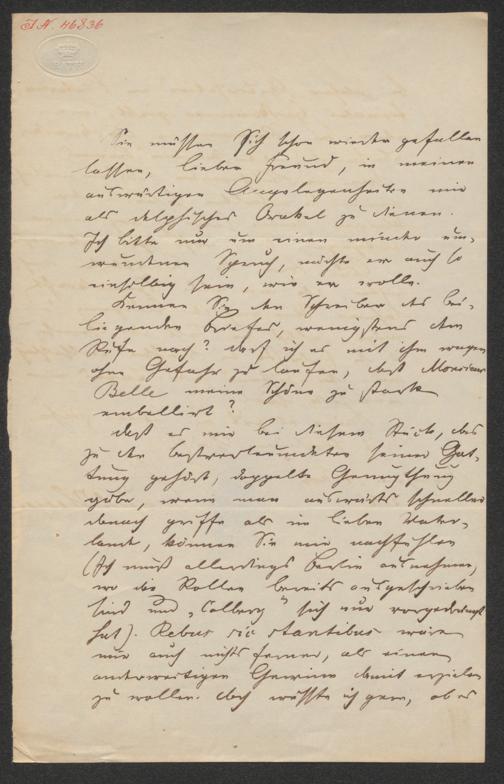 I.N. 46836
BATH
Sie müssen Sich schon wieder gefallen
lassen, lieber Freund, in meinen
auswärtigen Angelegenheiten mir
als delphisches Orakel zu dienen.
Ich bitte nur um einen minder um-
wundenen Spruch, möchte er auch so
einsylbig sein, wie er wolle.
Kennen Sie den Schreiber des bei-
liegenden Briefes, wenigstens dem
Rufe nach? Darf ich es mit ihm wagen
ohne Gefahr zu laufen, daß Monsieur
Belle meine Schöne zu stark
embellirt?
Daß es mir bei diesem Stück, das
zu den bestverleumdeten seiner Gat-
tung gehört, doppelte Genugthuung
gäbe, wenn man auswärts schneller
danach griffe als im lieben Vater-
lande, können Sie mir nachfühlen
(Ich muß allerdings Berlin ausnehmen,
wo die Rollen bereits ausgeschrieben
sind und „Colberg" sich nur vorgedrängt
hat). Rebus sic stantibus wäre
mir auch nichts ferner, als einen
anderweitigen Gewinn damit erzielen
zu wollen. Doch wüßte ich gern, ob es